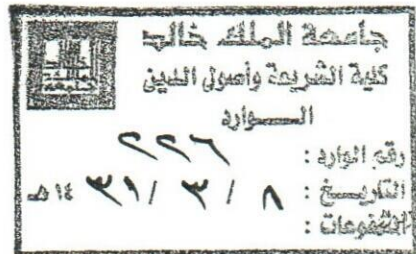 جامعة الملك خالد
كلية الشريعة وأصول الدين
الـــــوارد
رقم الوارد : ٢٢٦
التاريـــخ : ٨ / ٣ / ٣١ ١٤هـ
المشفوعات :